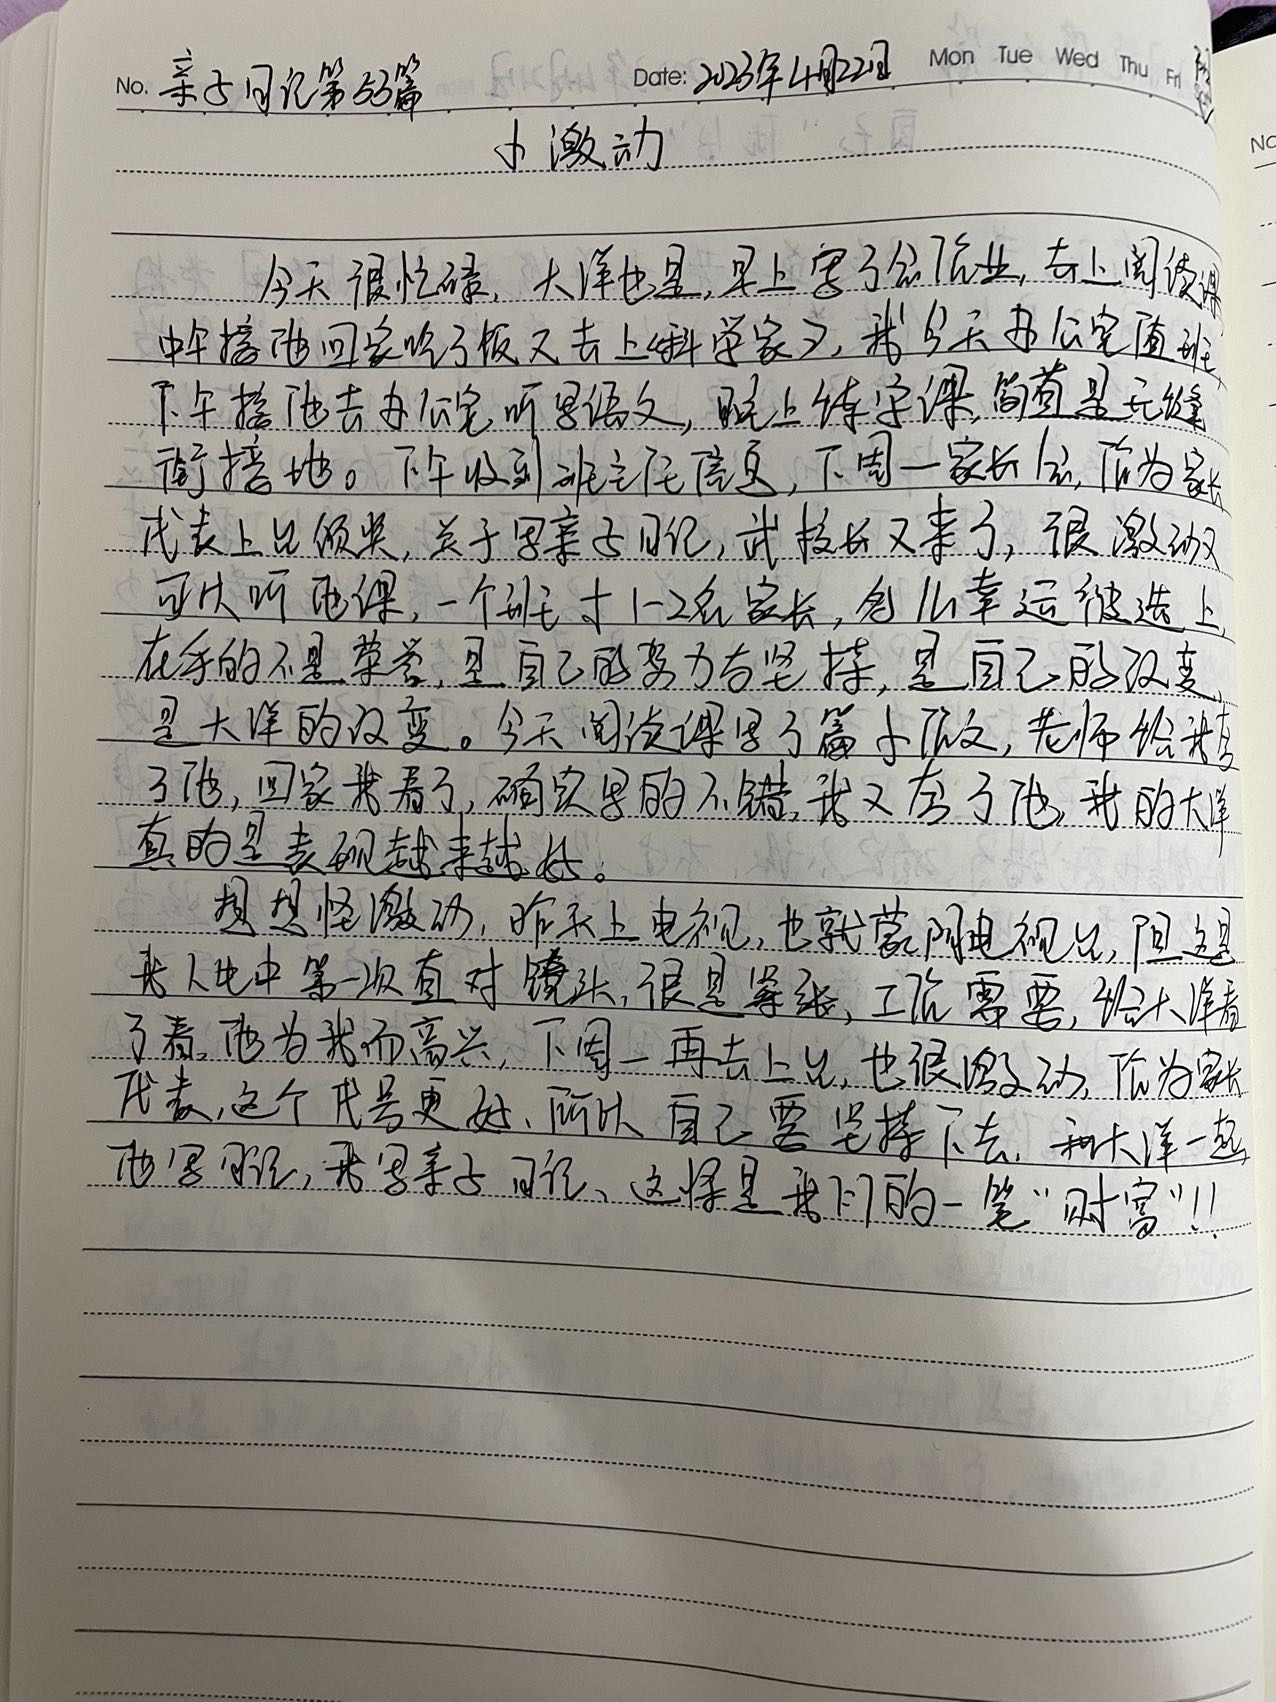 No. 亲子日记第53篇 Date: 2023年4月22日 Mon Tue Wed Thu Fri
小激动
今天很忙碌，大洋也是，早上写了会作业，去上阅读课
中午接他回家吃了饭又去上《科学家》，我今天办公室值班，
下午接他去办公室听写语文，晚上练字课，简直是无缝
衔接地。下午收到班主任信息，下周一家长会，作为家长
代表上台颁奖，关于写亲子日记，武校长又来了，很激动又
可以听他课，一个班才1-2名家长，多么幸运被选上，
在乎的不是荣誉，是自己的努力与坚持，是自己的改变，
是大洋的改变。今天阅读课写了篇小作文，老师给我夸
了他，回家我看了，确实写的不错，我又夸了他，我的大洋
真的是表现越来越好。
想想怪激动，昨天上电视，也就蒙阴电视台，但这是
我人生中第一次直对镜头，很是紧张，工作需要，给大洋看
了看，他为我而高兴，下周一再去上台，也很激动，作为家长
代表，这个代号更好、所以自己要坚持下去，和大洋一起，
他写日记，我写亲子日记、这将是我们的一笔“财富”！！
No